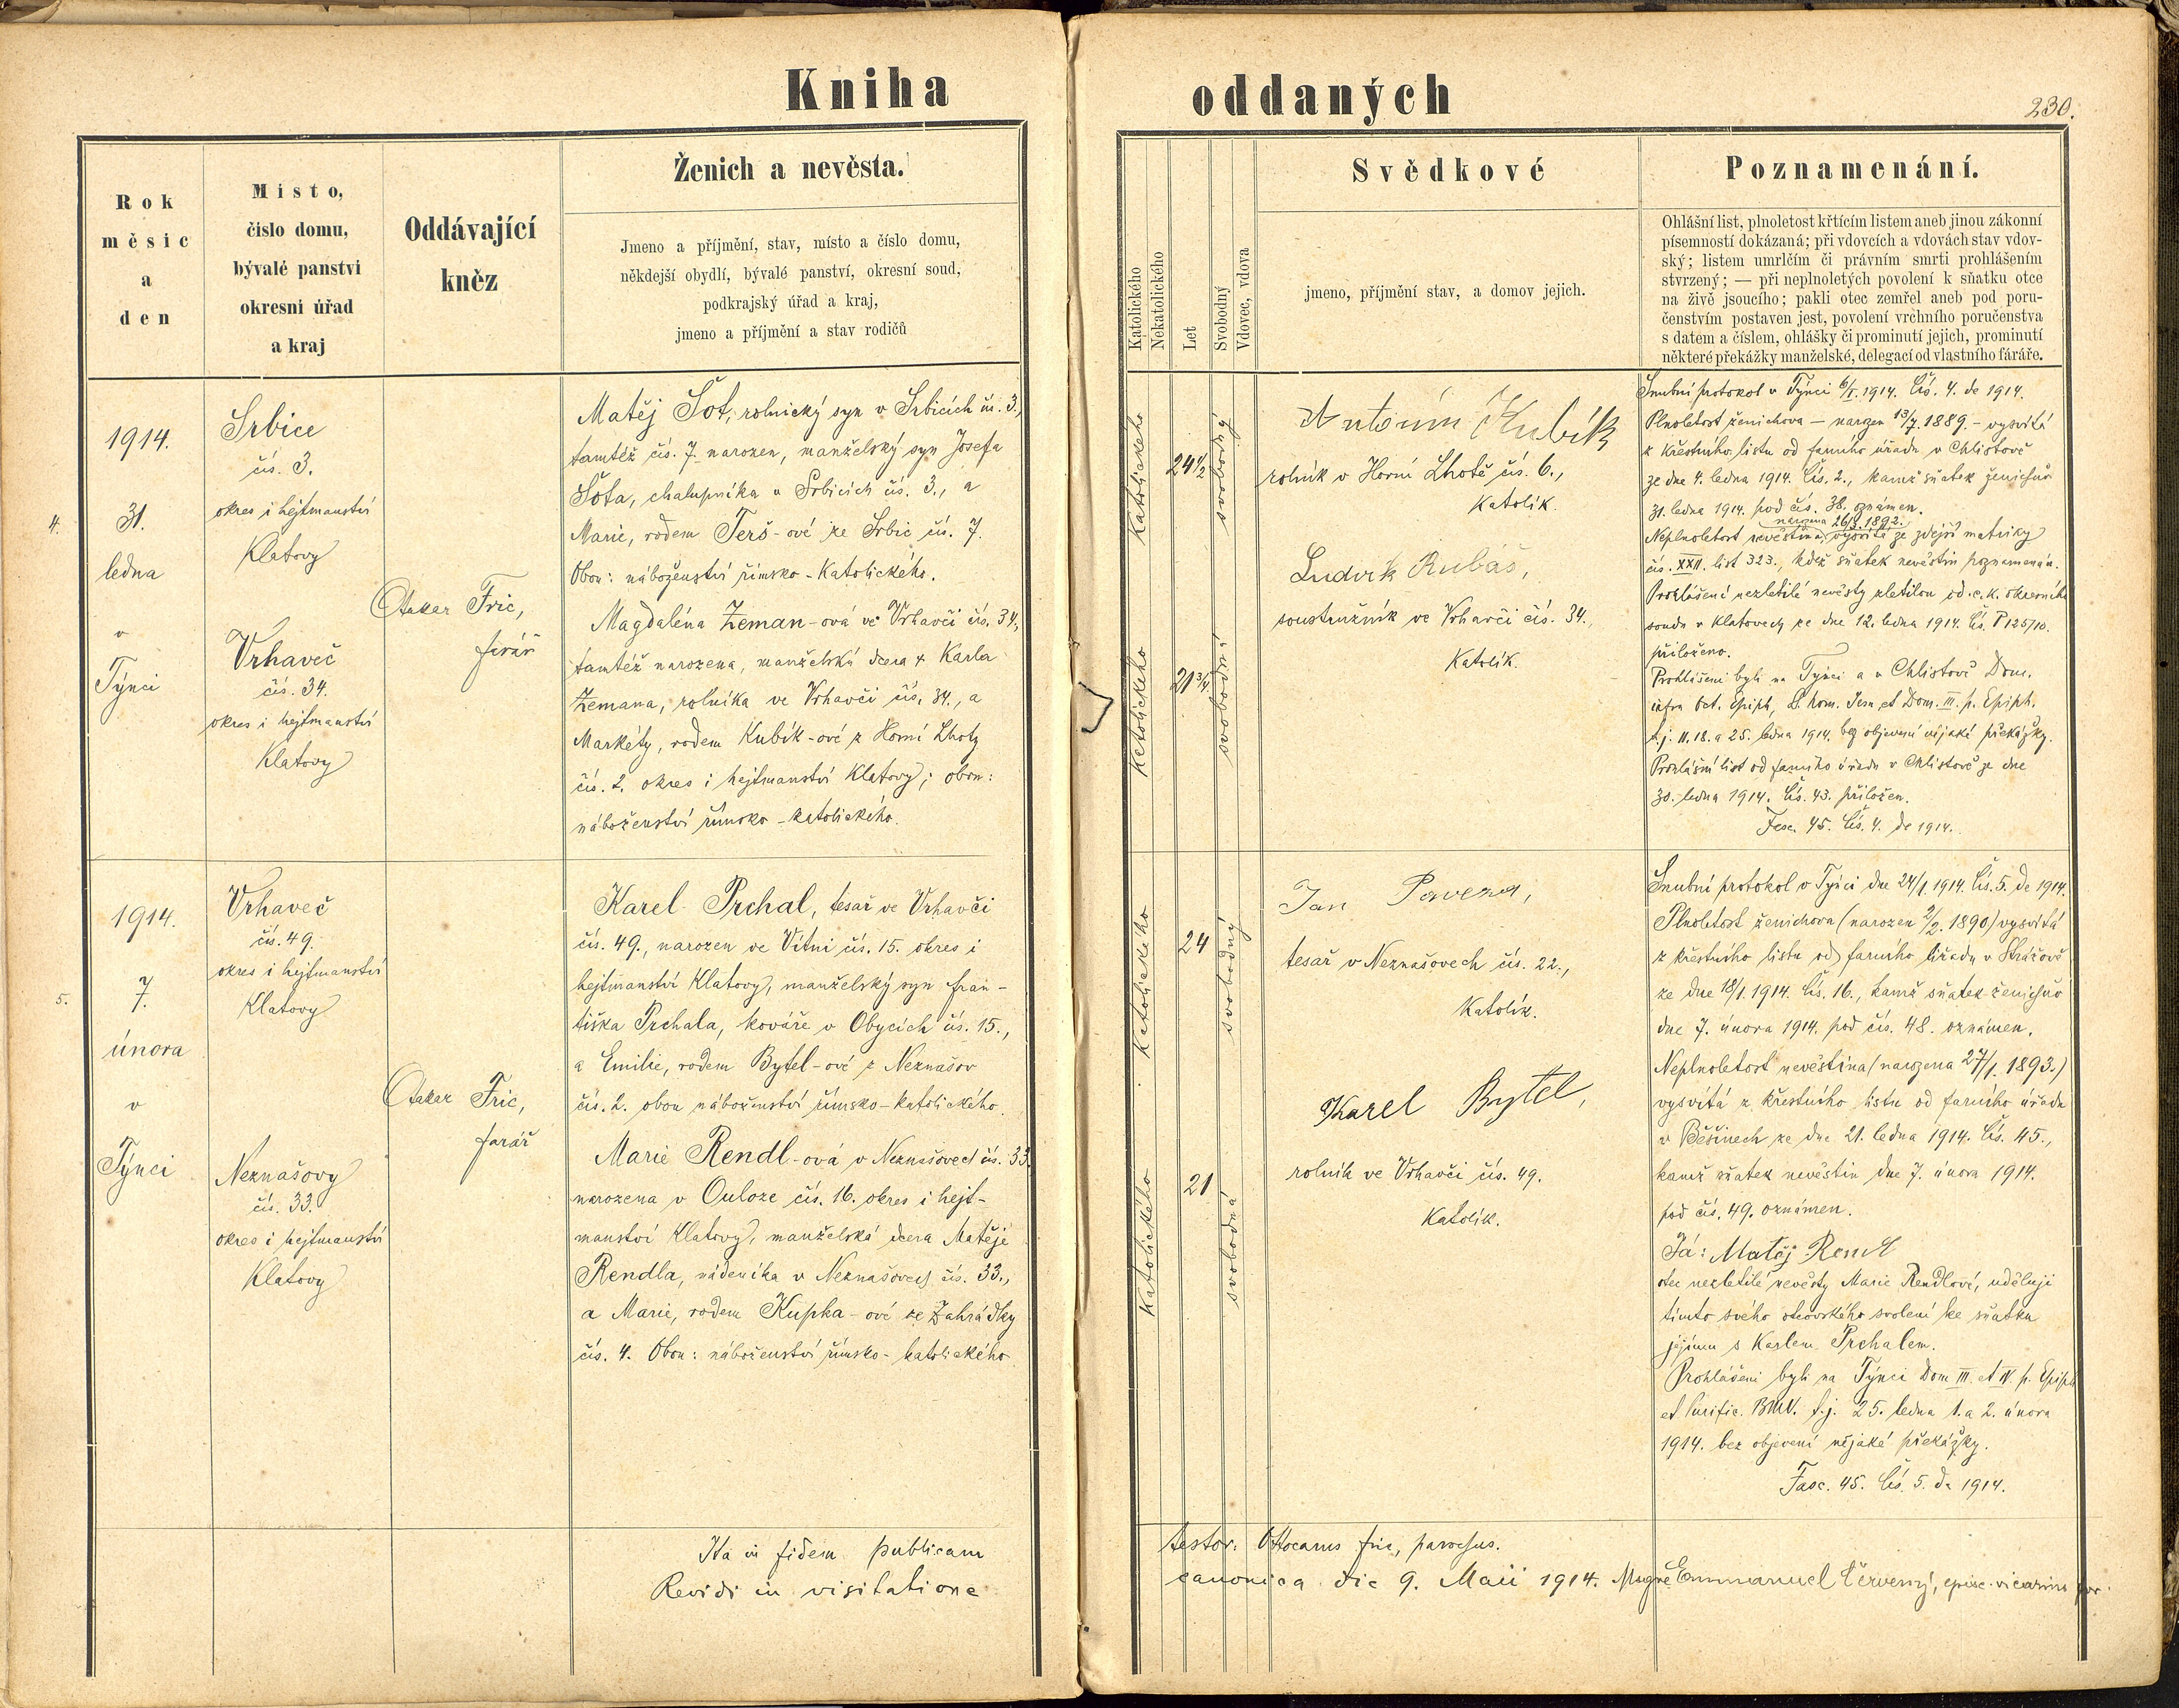 Kniha oddaných
230.
Rok
měsíc
a
den
Místo,
číslo domu,
bývalé panství
okresní úřad
a kraj
Oddávající
kněz
Ženich a nevěsta.
Jmeno a příjmění, stav, místo a číslo domu,
někdejší obydlí, bývalé panství, okresní soud,
podkrajský úřad a kraj,
jmeno a příjmění a stav rodičů
Katolického
Nekatolického
Let
Svobodný
Vdovec, vdova
Svědkové
jmeno, příjmění stav, a domov jejich.
Poznamenání.
Ohlášní list, plnoletost křtícím listem aneb jinou zákonní
písemností dokázaná; při vdovcích a vdovách stav vdov-
ský; listem umrlčím či právním smrti prohlášením
stvrzený; — při neplnoletých povolení k sňatku otce
na živě jsoucího; pakli otec zemřel aneb pod poru-
čenstvím postaven jest, povolení vrchního poručenstva
s datem a číslem, ohlášky či prominutí jejich, prominutí
některé překážky manželské, delegací od vlastního faráře.
4.
1914.
31.
ledna
v
Týnci
Srbice
čís. 3.
okres i hejtmanství
Klatovy
Vrhaveč
čís. 34.
okres i hejtmanství
Klatovy
Otakar Fric,
farář
Matěj Šot, rolnický syn v Srbicích čís. 3,
tamtéž čís. 7. narozen, manželský syn Josefa
Šota, chalupníka v Srbicích čís. 3., a
Marie, rodem Terš-ové ze Srbic čís. 7.
Obou: náboženství římsko-katolického.
Magdaléna Zeman-ová ve Vrhavči čís. 34,
tamtéž narozena, manželská dcera † Karla
Zemana, rolníka ve Vrhavči čís. 34., a
Markéty, rodem Kubík-ové z Horní Lhoty
čís. 2. okres i hejtmanství Klatovy; obou:
náboženství římsko-katolického.
katolického
24 1/2
svobodný
katolického
21 3/4
svobodná
Antonín Kubík
rolník v Horní Lhotě čís. 6.,
Katolík.
Ludvík Rubáš,
soustružník ve Vrhavči čís. 34.,
Katolík.
Snubní protokol v Týnci 6/I. 1914. Čís. 4. de 1914.
Plnoletost ženichova — narozen 13/7. 1889. — vysvítá
z křestního listu od farního úřadu v Chlistově
ze dne 4. ledna 1914. Čís. 2., kamž sňatek ženichův
31. ledna 1914. pod čís. 38. oznámen.
narozena 26/3. 1892.
Neplnoletost nevěstina, vysvítá ze zdejší matriky
čís. XXII. list 323., kdež sňatek nevěstin poznamenán.
Prohlášení nezletilé nevěsty zletilou od c. k. okresního
soudu v Klatovech ze dne 12. ledna 1914. Čís. P 125/10.
přiloženo.
Prohlášeni byli na Týnci a v Chlistově Dom.
infra Oct. Epiph, S. nom. Jesu et Dom. III. p. Epiph.
t. j. 11. 18. a 25. ledna 1914. bez objevení nějaké překážky.
Prohlášní list od farního úřadu v Chlistově ze dne
30. ledna 1914. Čís. 43. přiložen.
Fasc. 45. Čís. 4. de 1914.
5.
1914.
7.
února
v
Týnci
Vrhaveč
čís. 49.
okres i hejtmanství
Klatovy
Neznašovy
čís. 33.
okres i hejtmanství
Klatovy
Otakar Fric,
farář
Karel Prchal, tesař ve Vrhavči
čís. 49., narozen ve Vítni čís. 15. okres i
hejtmanství Klatovy, manželský syn Fran-
tiška Prchala, kováře v Obycích čís. 15.,
a Emilie, rodem Bytel-ové z Neznašov
čís. 2. obou náboženství římsko-katolického.
Marie Rendl-ová v Neznašovech čís. 33.
narozena v Ouloze čís. 16. okres i hejt-
manství Klatovy, manželská dcera Matěje
Rendla, nádeníka v Neznašovech čís. 33.,
a Marie, rodem Kupka-ové ze Zahrádky
čís. 4. Obou: náboženství římsko-katolického.
katolického
24
svobodný
katolického
21
svobodná
Jan
tesař v Neznašovech čís. 22.,
Katolík.
Karel Bytel,
rolník ve Vrhavči čís. 49.
Katolík.
Snubní protokol v Týnci dne 24/1. 1914. Čís. 5. de 1914.
Plnoletost ženichova (narozen 2/2. 1890) vysvítá
z křestního listu od farního úřadu v Strážově
ze dne 18/1. 1914. Čís. 16., kamž sňatek ženichův
dne 7. února 1914. pod čís. 48. oznámen.
Neplnoletost nevěstina (narozena 27/1. 1893.)
vysvítá z křestního listu od farního úřadu
v Běšinech ze dne 21. ledna 1914. Čís. 45.,
kamž sňatek nevěstin dne 7. února 1914.
pod čís. 49. oznámen.
Já: Matěj Rendl
otec nezletilé nevěsty Marie Rendlové, uděluji
tímto svého otcovského svolení ke sňatku
jejímu s Karlem Prchalem.
Prohlášeni byli na Týnci Dom III. et IV. p. Epiph
et Purific. BMV. t. j. 25. ledna 1. a 2. února
1914. bez objevení nějaké překážky.
Fasc. 45. Čís. 5. de 1914.
Ita in fidem publicam testor: Ottocarus Fric, parochus.
Revidi in visitatione canonica die 9. Maii 1914. Emmanuel Červený, episc. vicarius